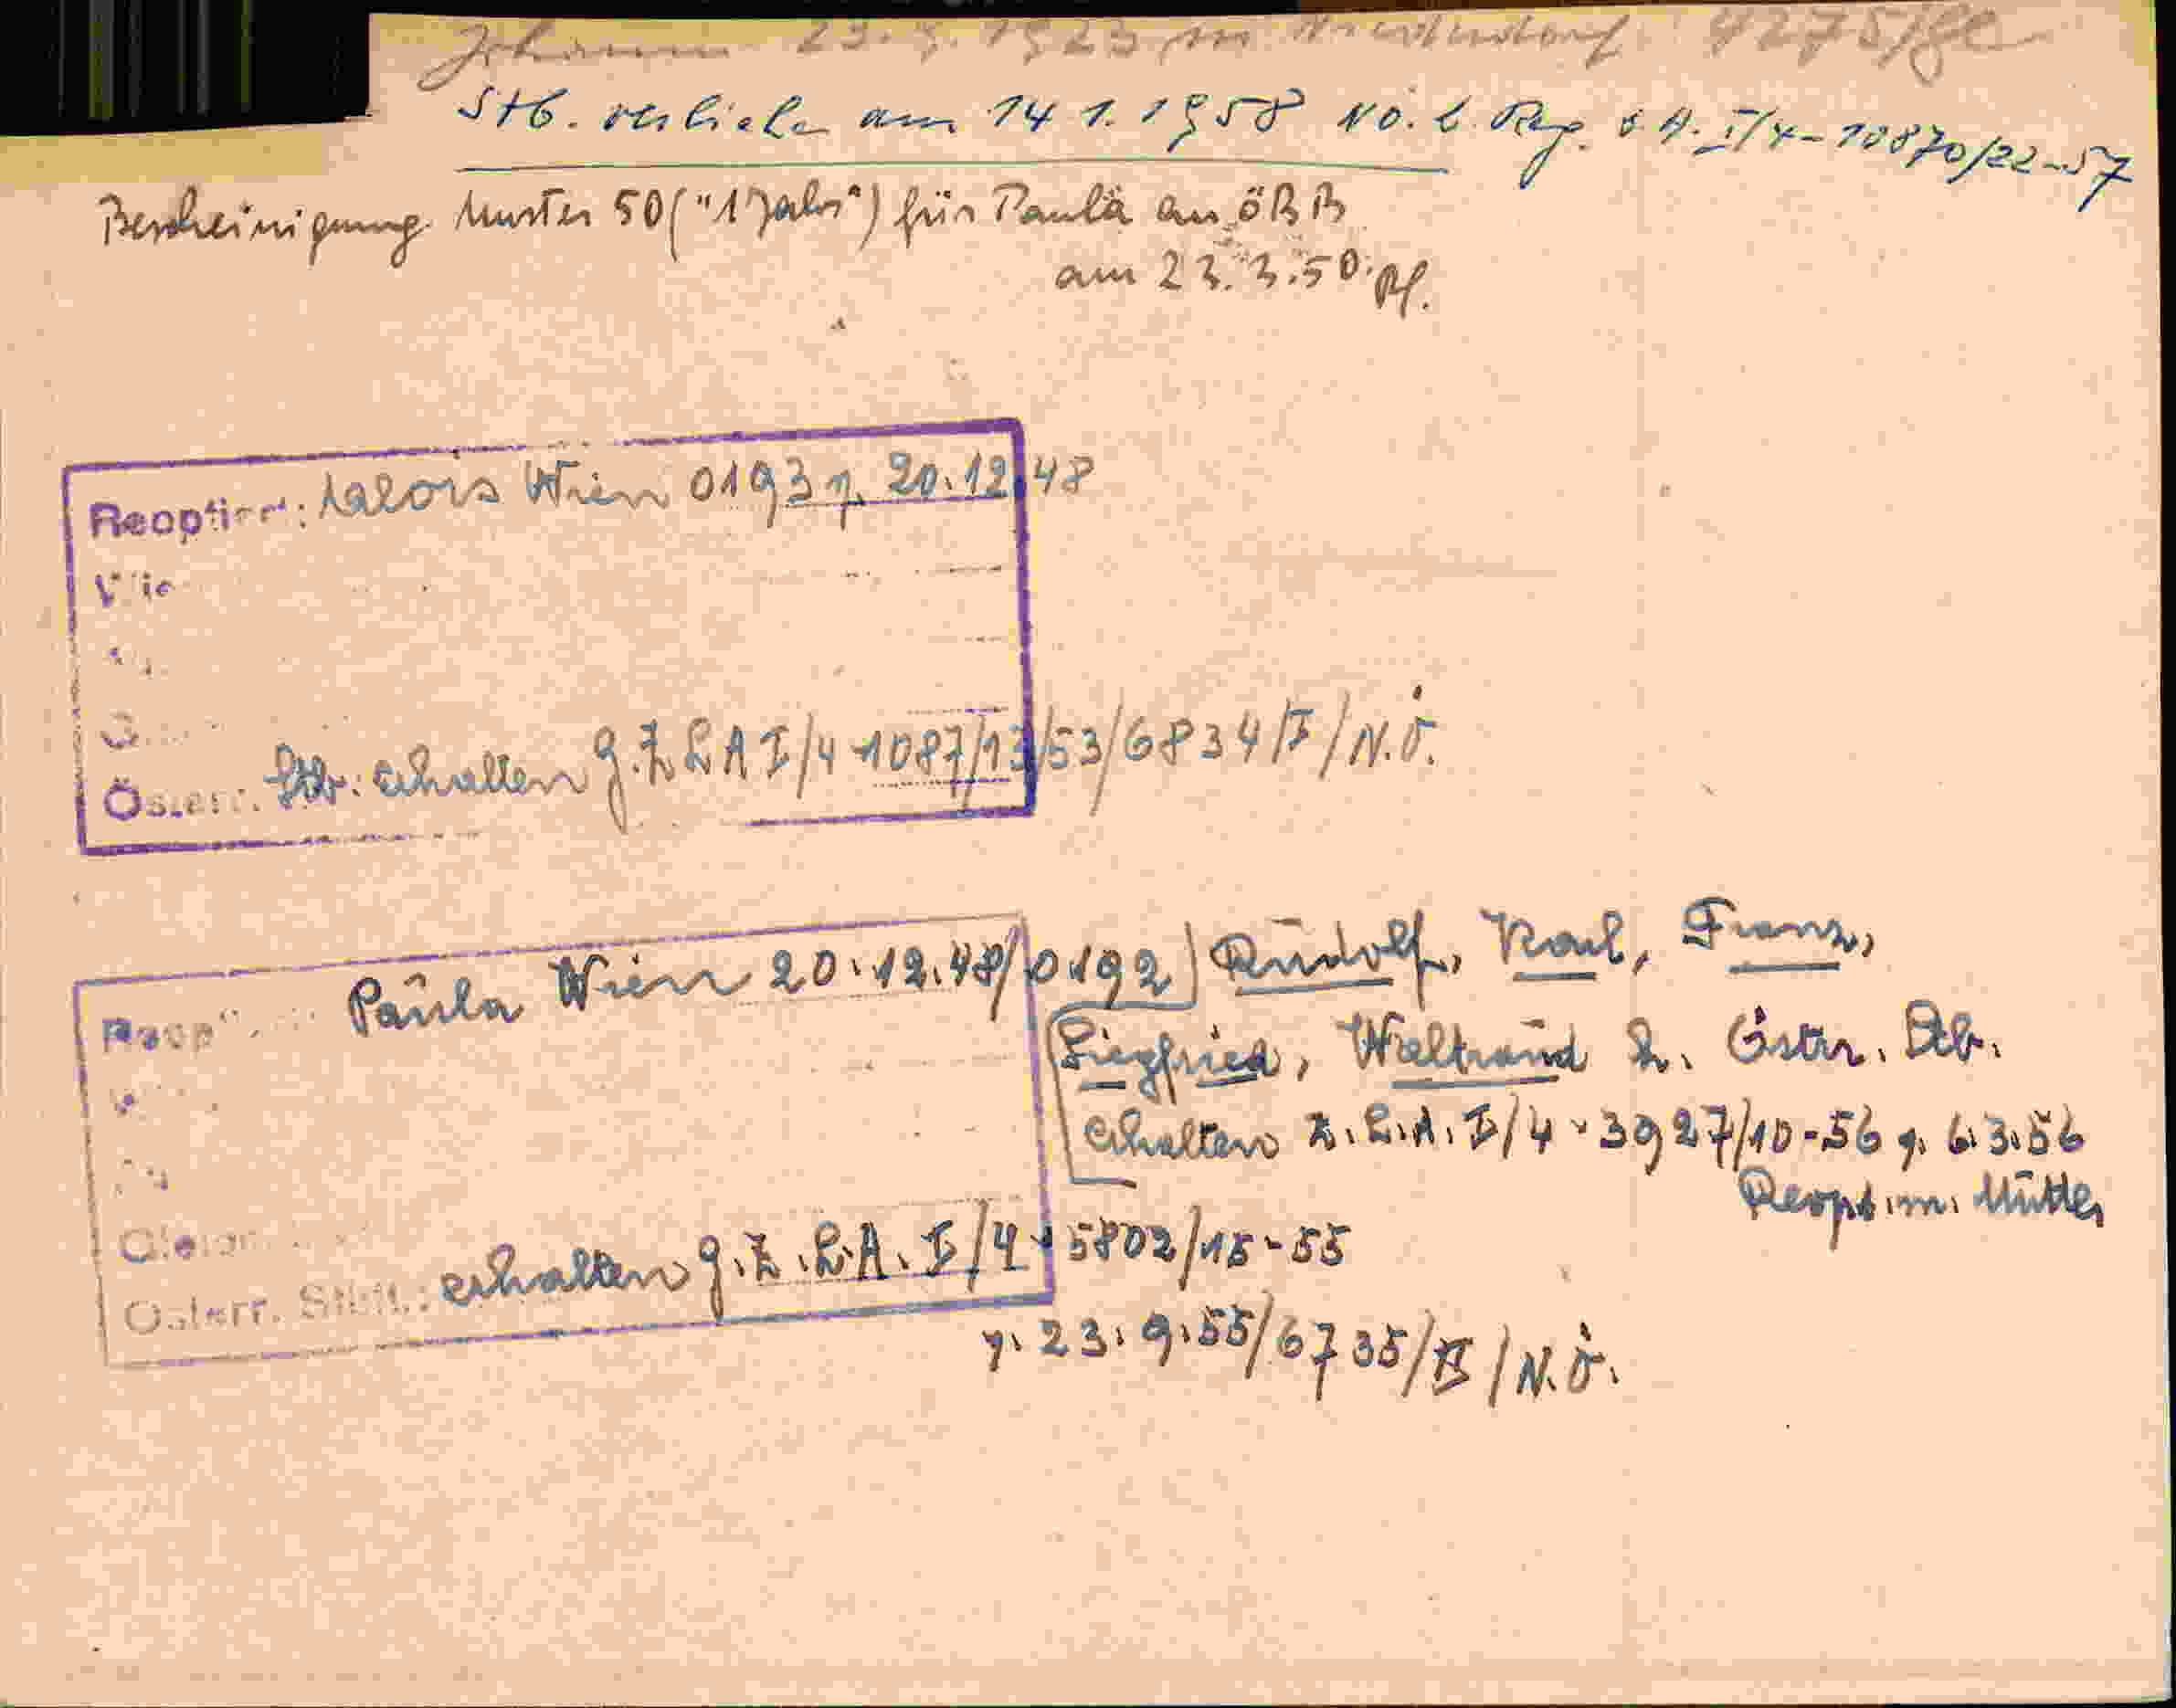 Johann 23. 1923 in 4275/
Stb. verliehen am 14 1. 1958 NÖ. L. Reg. L A. I/4-10870/22-57
Bescheinigung Muster 50 ("1 Jahr") für Paula an ÖBB
am 23.3.50.
Reoptiert: Alois Wien 0193 v. 20.12.48
Österr. Stb. erhalten g. Z L A I/4-1087/13/53/6834/I/N.Ö.
Paula Wien 20.12.48/0192 Rudolf, Karl, Franz,
Siegfried, Waltraud h. Östr. Stb.
erhalten Z.L.A.I/4-3927/10-56 v. 6.3.56
Reopt. m. Mutter
Österr. Stbft.: erhalten g.Z.L.A.I/4-5802/15-55
v. 23.9.55/6735/II/N.Ö.